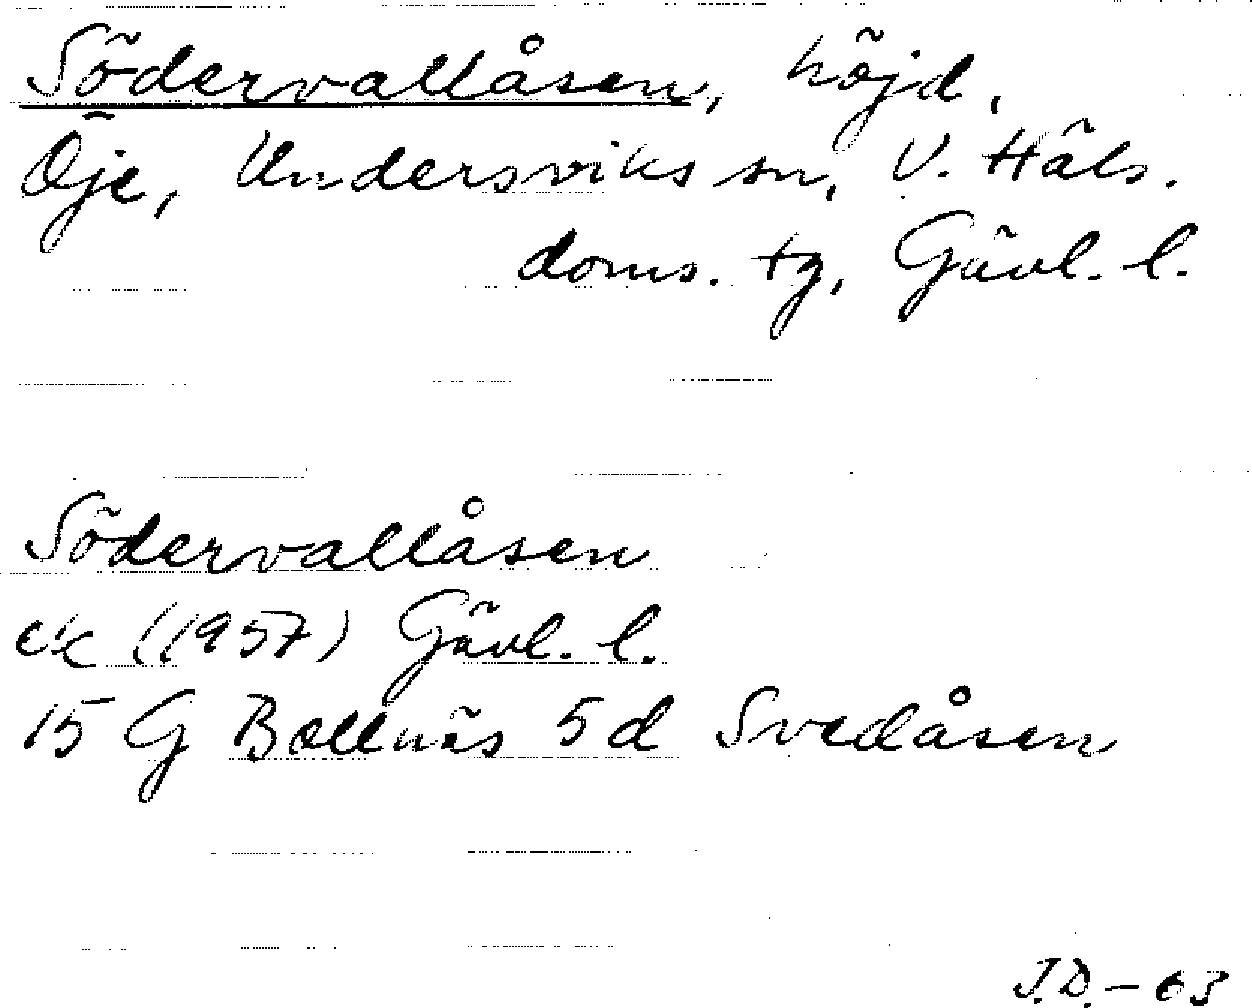 Södervallåsen, höjd,
Öje, Undersviks sn, V. Häls.
doms. tg, Gävl. l.
Södervallåsen
ek (1957) Gävl. l.
15 G Bollnäs 5 d Svedåsen
J.D. - 63